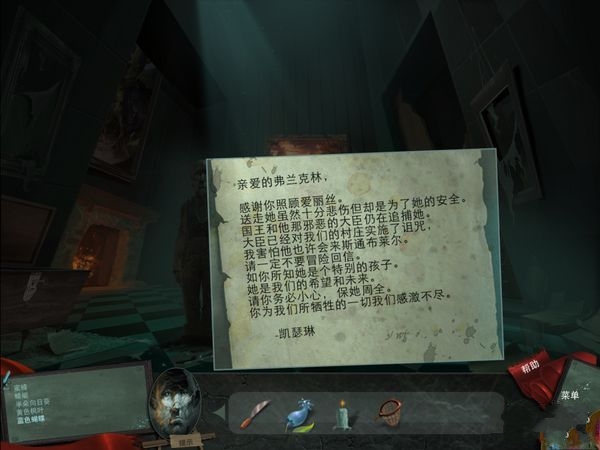 亲爱的弗兰克林，
感谢你照顾爱丽丝。
送走她虽然十分悲伤但却是为了她的安全。
国王和他那邪恶的大臣仍在追捕她。
大臣已经对我们的村庄实施了诅咒，
我害怕他也许会来斯通布莱尔。
请一定不要冒险回信。
如你所知她是个特别的孩子。
她是我们的希望和未来。
请你务必小心，保她周全。
你为我们所牺牲的一切我们感激不尽。
-凯瑟琳
蜜蜂
蜻蜓
半朵向日葵
黄色枫叶
蓝色蝴蝶
提示
帮助
菜单